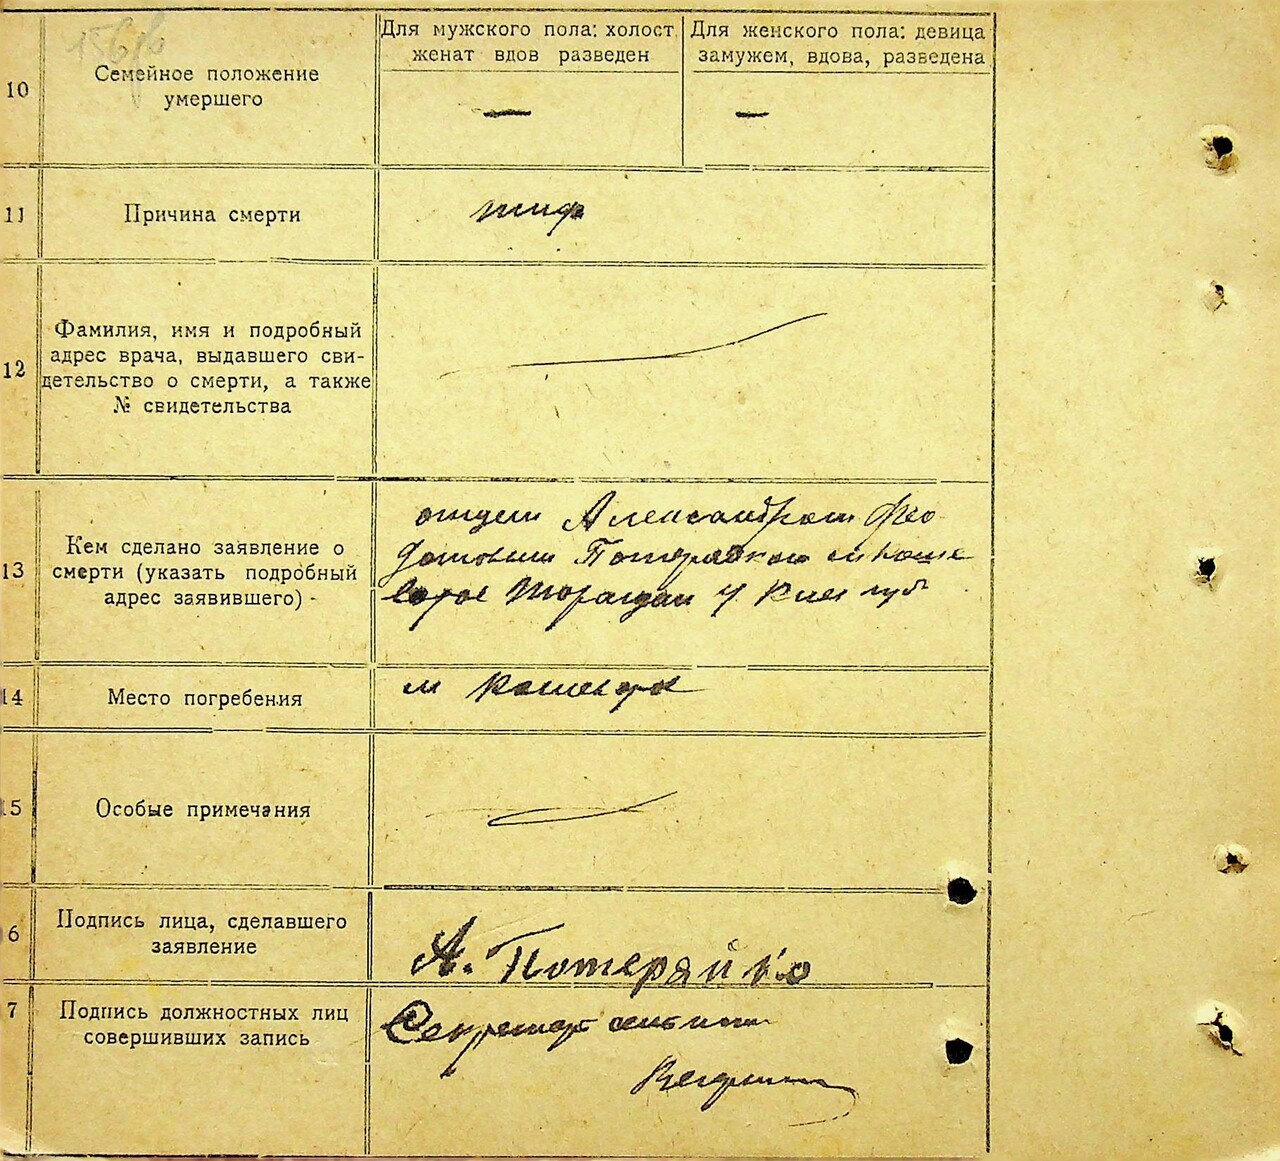 156/б
10
Семейное положение
умершего
Для мужского пола: холост
женат вдов разведен
Для женского пола: девица
замужем, вдова, разведена
—
—
11
Причина смерти
тиф
12
Фамилия, имя и подробный
адрес врача, выдавшего сви-
детельство о смерти, а также
№ свидетельства
13
Кем сделано заявление о
смерти (указать подробный
адрес заявившего) -
отцем Александром Фео
дотовым Потерайком м Коше
ватое Таращан у Киев губ
14
Место погребения
м Кошевате
15
Особые примечания
6
Подпись лица, сделавшего
заявление
А. Потерайко
7
Подпись должностных лиц
совершивших запись
Секретарь